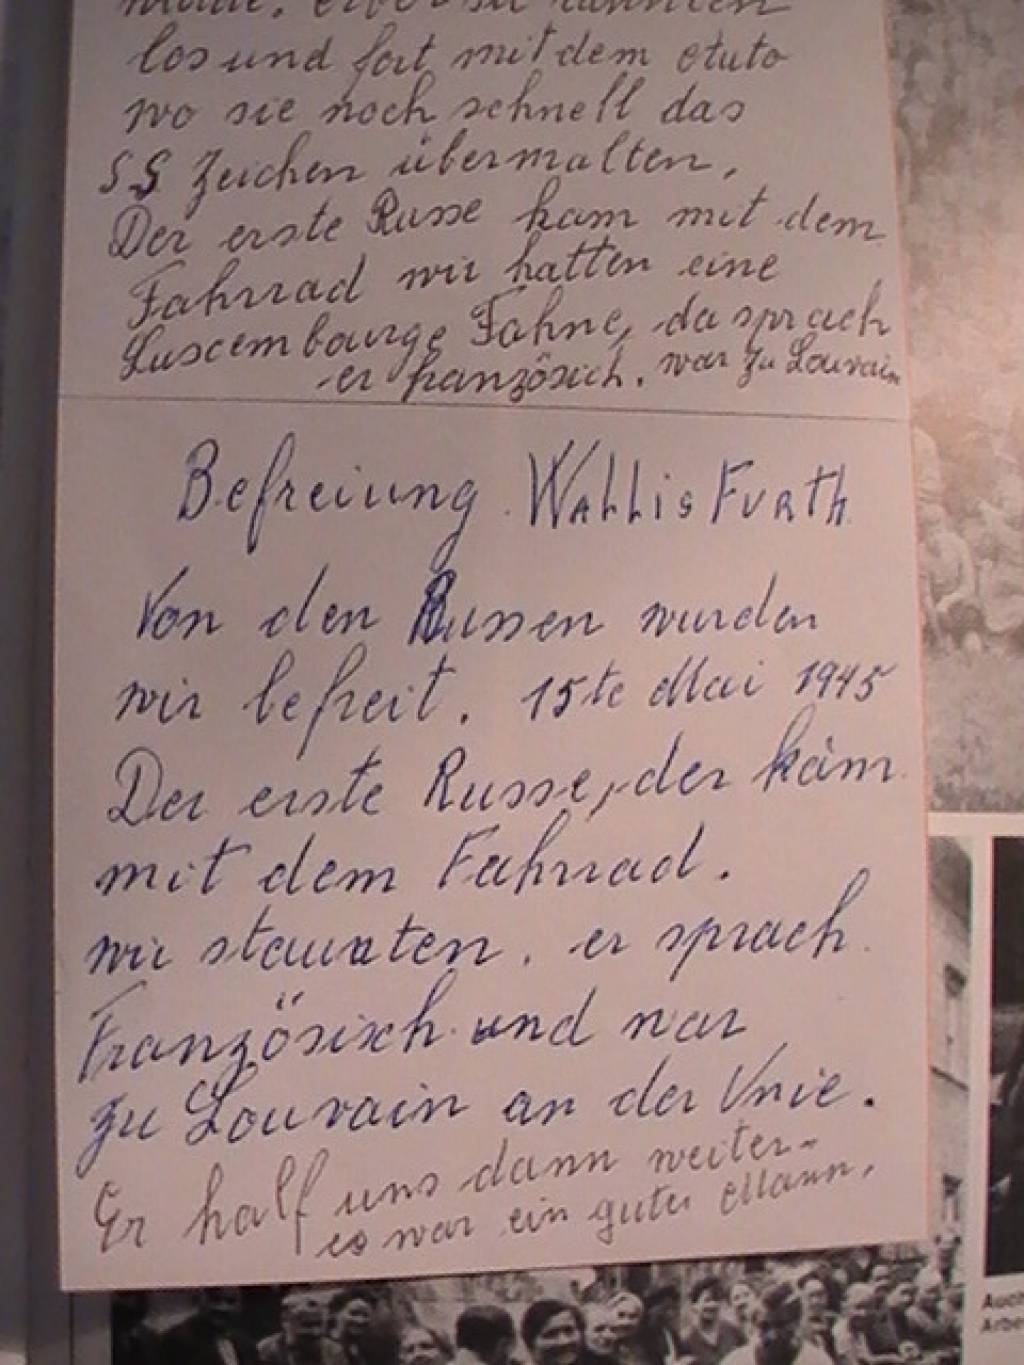 los und fort mit dem Auto
wo sie noch schnell das
SS Zeichen übermalten,
Der erste Russe kam mit dem
Fahrrad wir hatten eine
Luxembourge Fahne, da sprach
er französich. war zu Louvain
Befreiung WALLis FURTH
Von den Russen wurden
wir befreit. 15te Mai 1945
Der erste Russe, der kam
mit dem Fahrrad.
wir staunten. er sprach
Französisch und war
zu Louvain an der Unie.
Er half uns dann weiter-
es war ein guter Mann,
Auch
Arbe